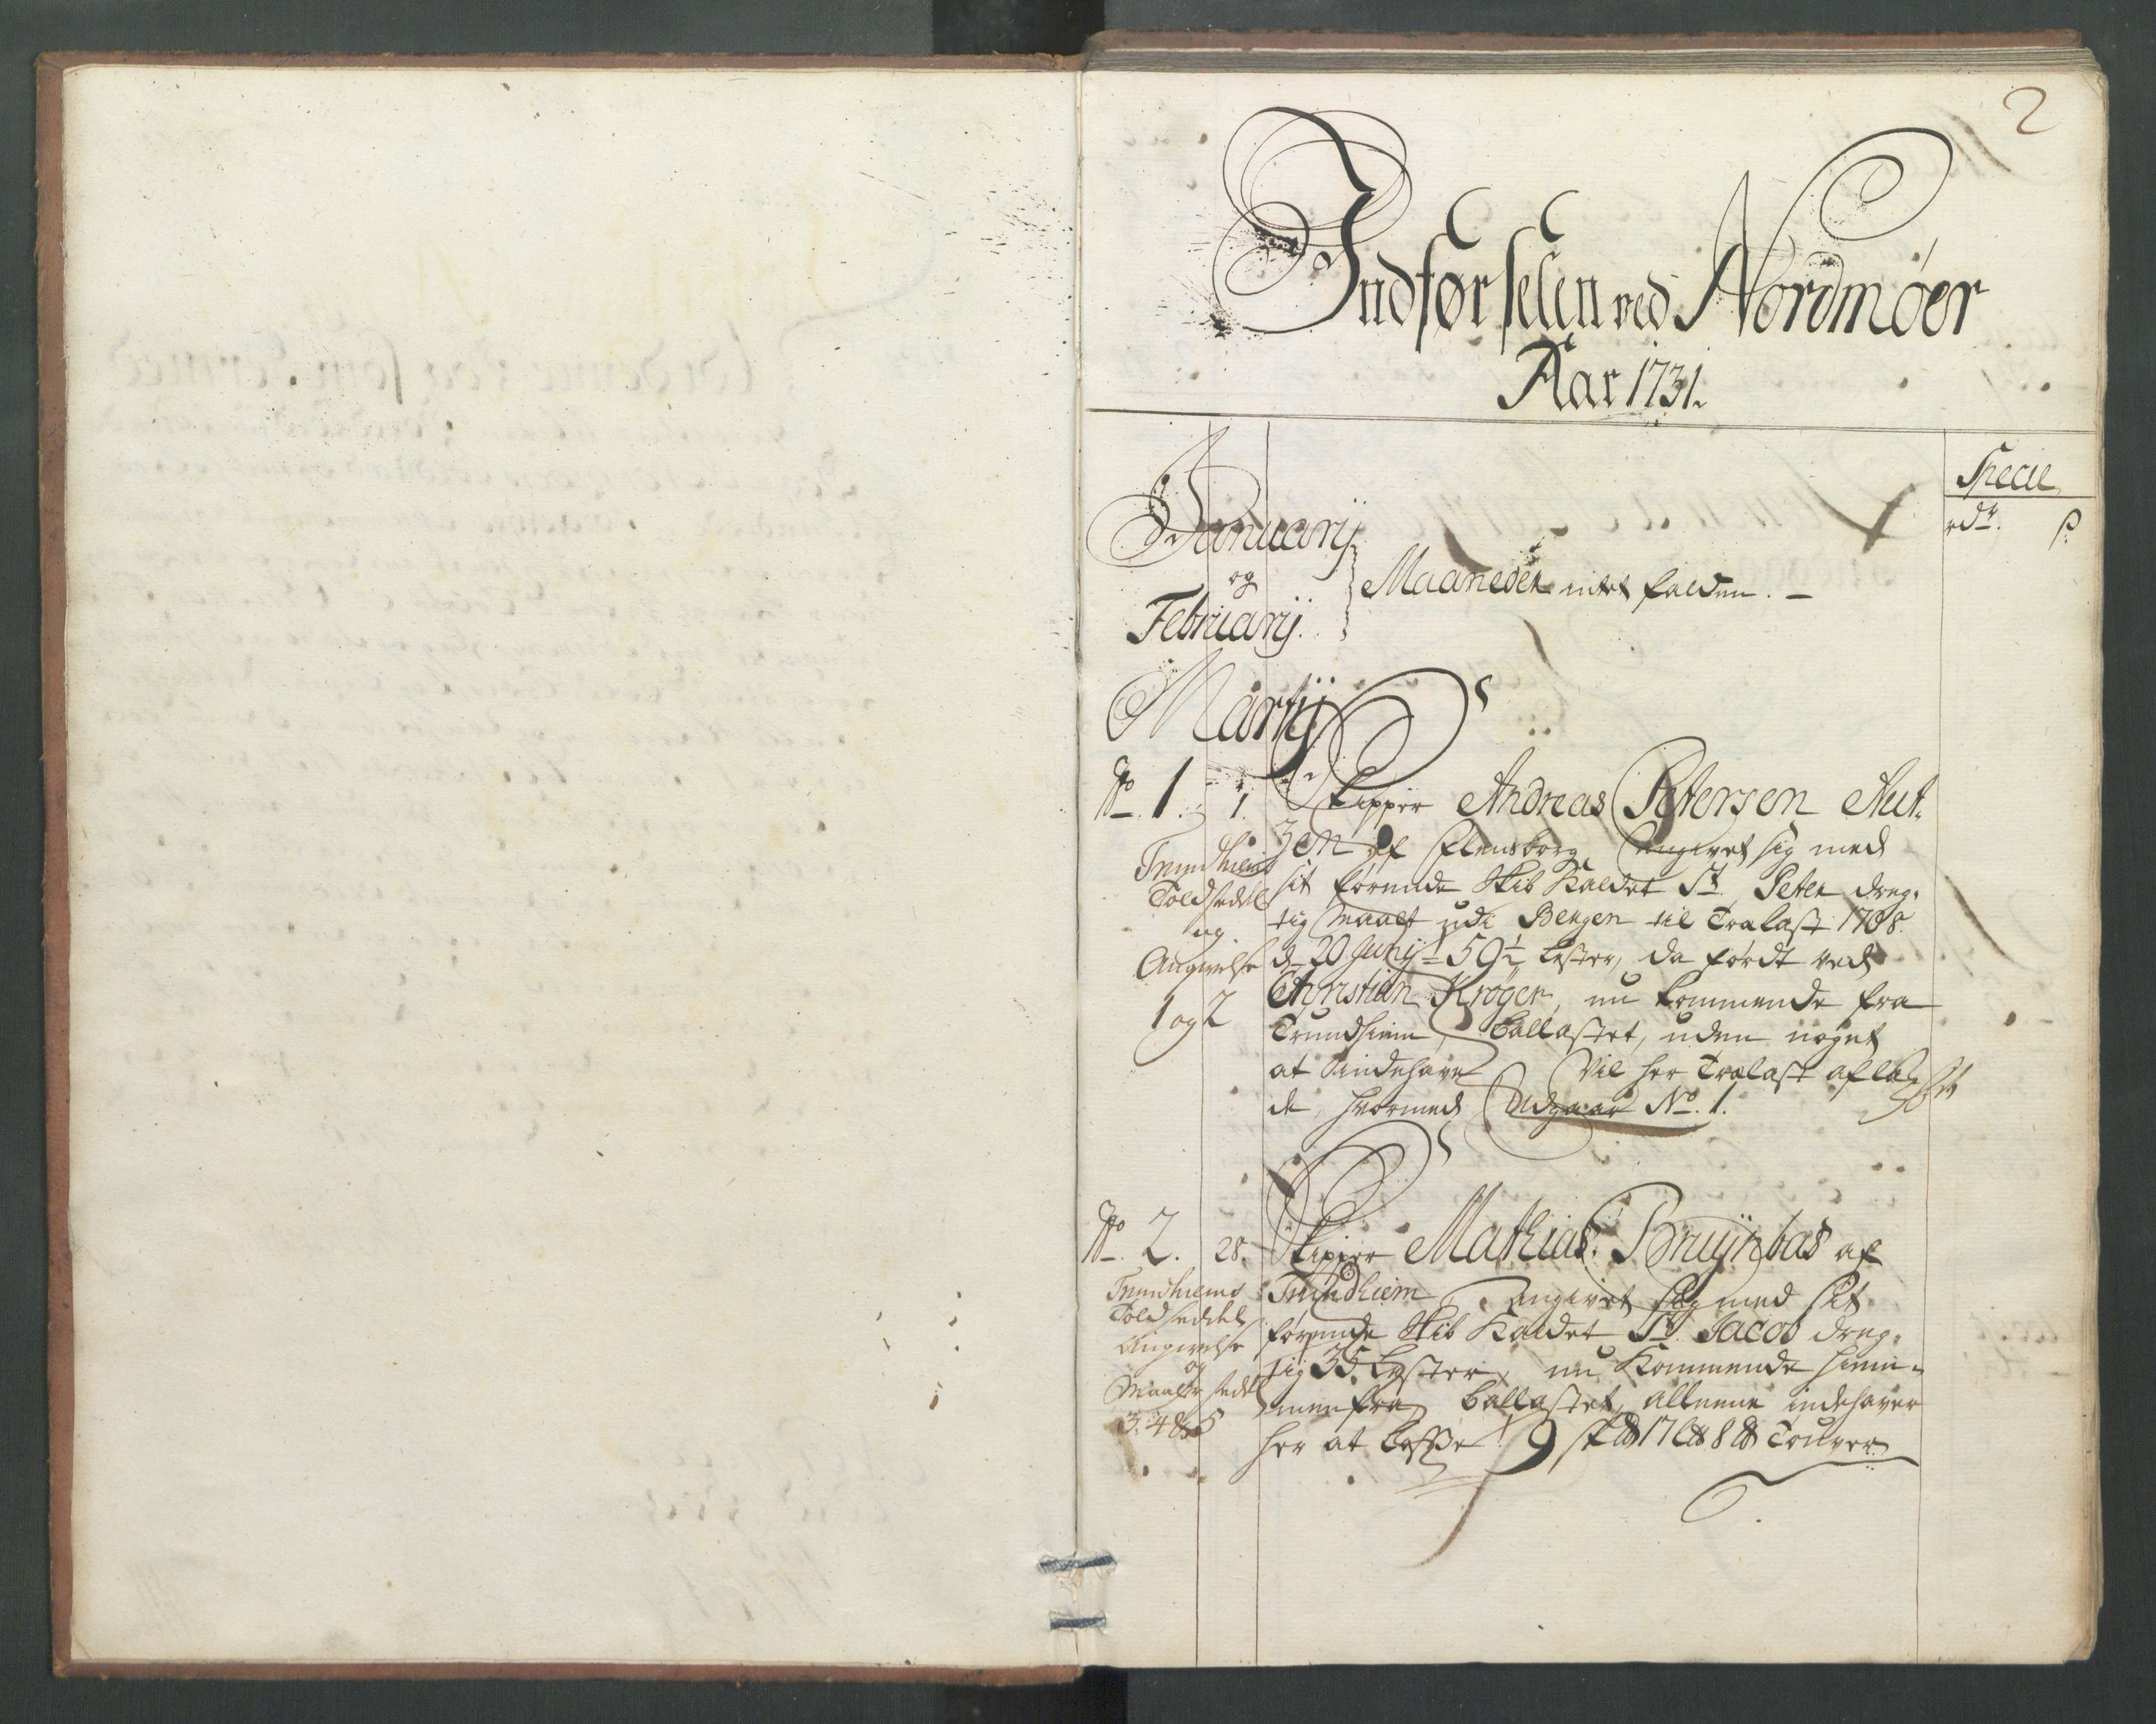 2
Indførselen ved Nordmøer
Aar 1731.
Specie
rdr. ß
Januarij
og
Februarij.
Maaneder intet falden. –
Martij
No. 1. 1. Skipper Andreas Petersen Aut-
zen af Flensborg, Angivet sig med
sit førende Skib Kaldet St. Peter dreg-
tig Maalt udi Bergen til Tralast 1708.
d. 20 Junij 59½ Lester, da førdt ved
Christian Krøger, nu kommende fra
Trundhiem, Ballastet, uden noget
at indehave Vil her Tralast aflа-
de, hvormed Udgaar No. 1.
Trundhiems
Toldseddel
og
Angivelse
1 og 2
No. 2. 28. Skipper Mathias Bruÿnbas af
Trundhiem, Angivet sig med sit
førende Skib Kaldet St. Jacob dreg-
tig 35. Lester, nu Kommende hiem-
menfra Ballastet, alleene indehaver
her at Losse 9 sk℔ 17 L℔ 8 ℔ Touver
Trundhiems
Toldseddel
Angivelse
og
Maale sedel
3. 4 & 5